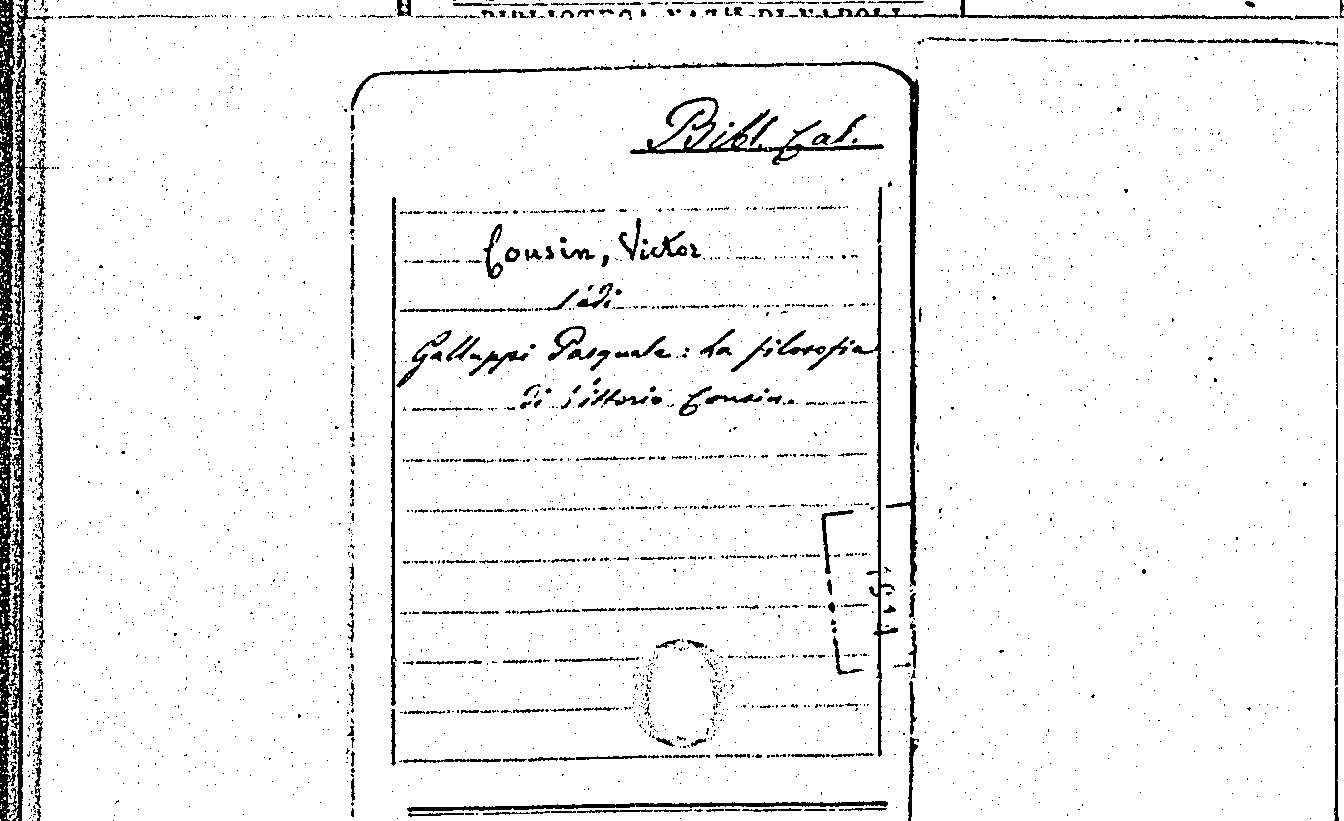 BIBLIOTECA NAZ.LE DI NAPOLI
Bibl. Cat.
Cousin, Victor
Vedi
Galluppi Pasquale: La filosofia
di Vittorio Cousin.